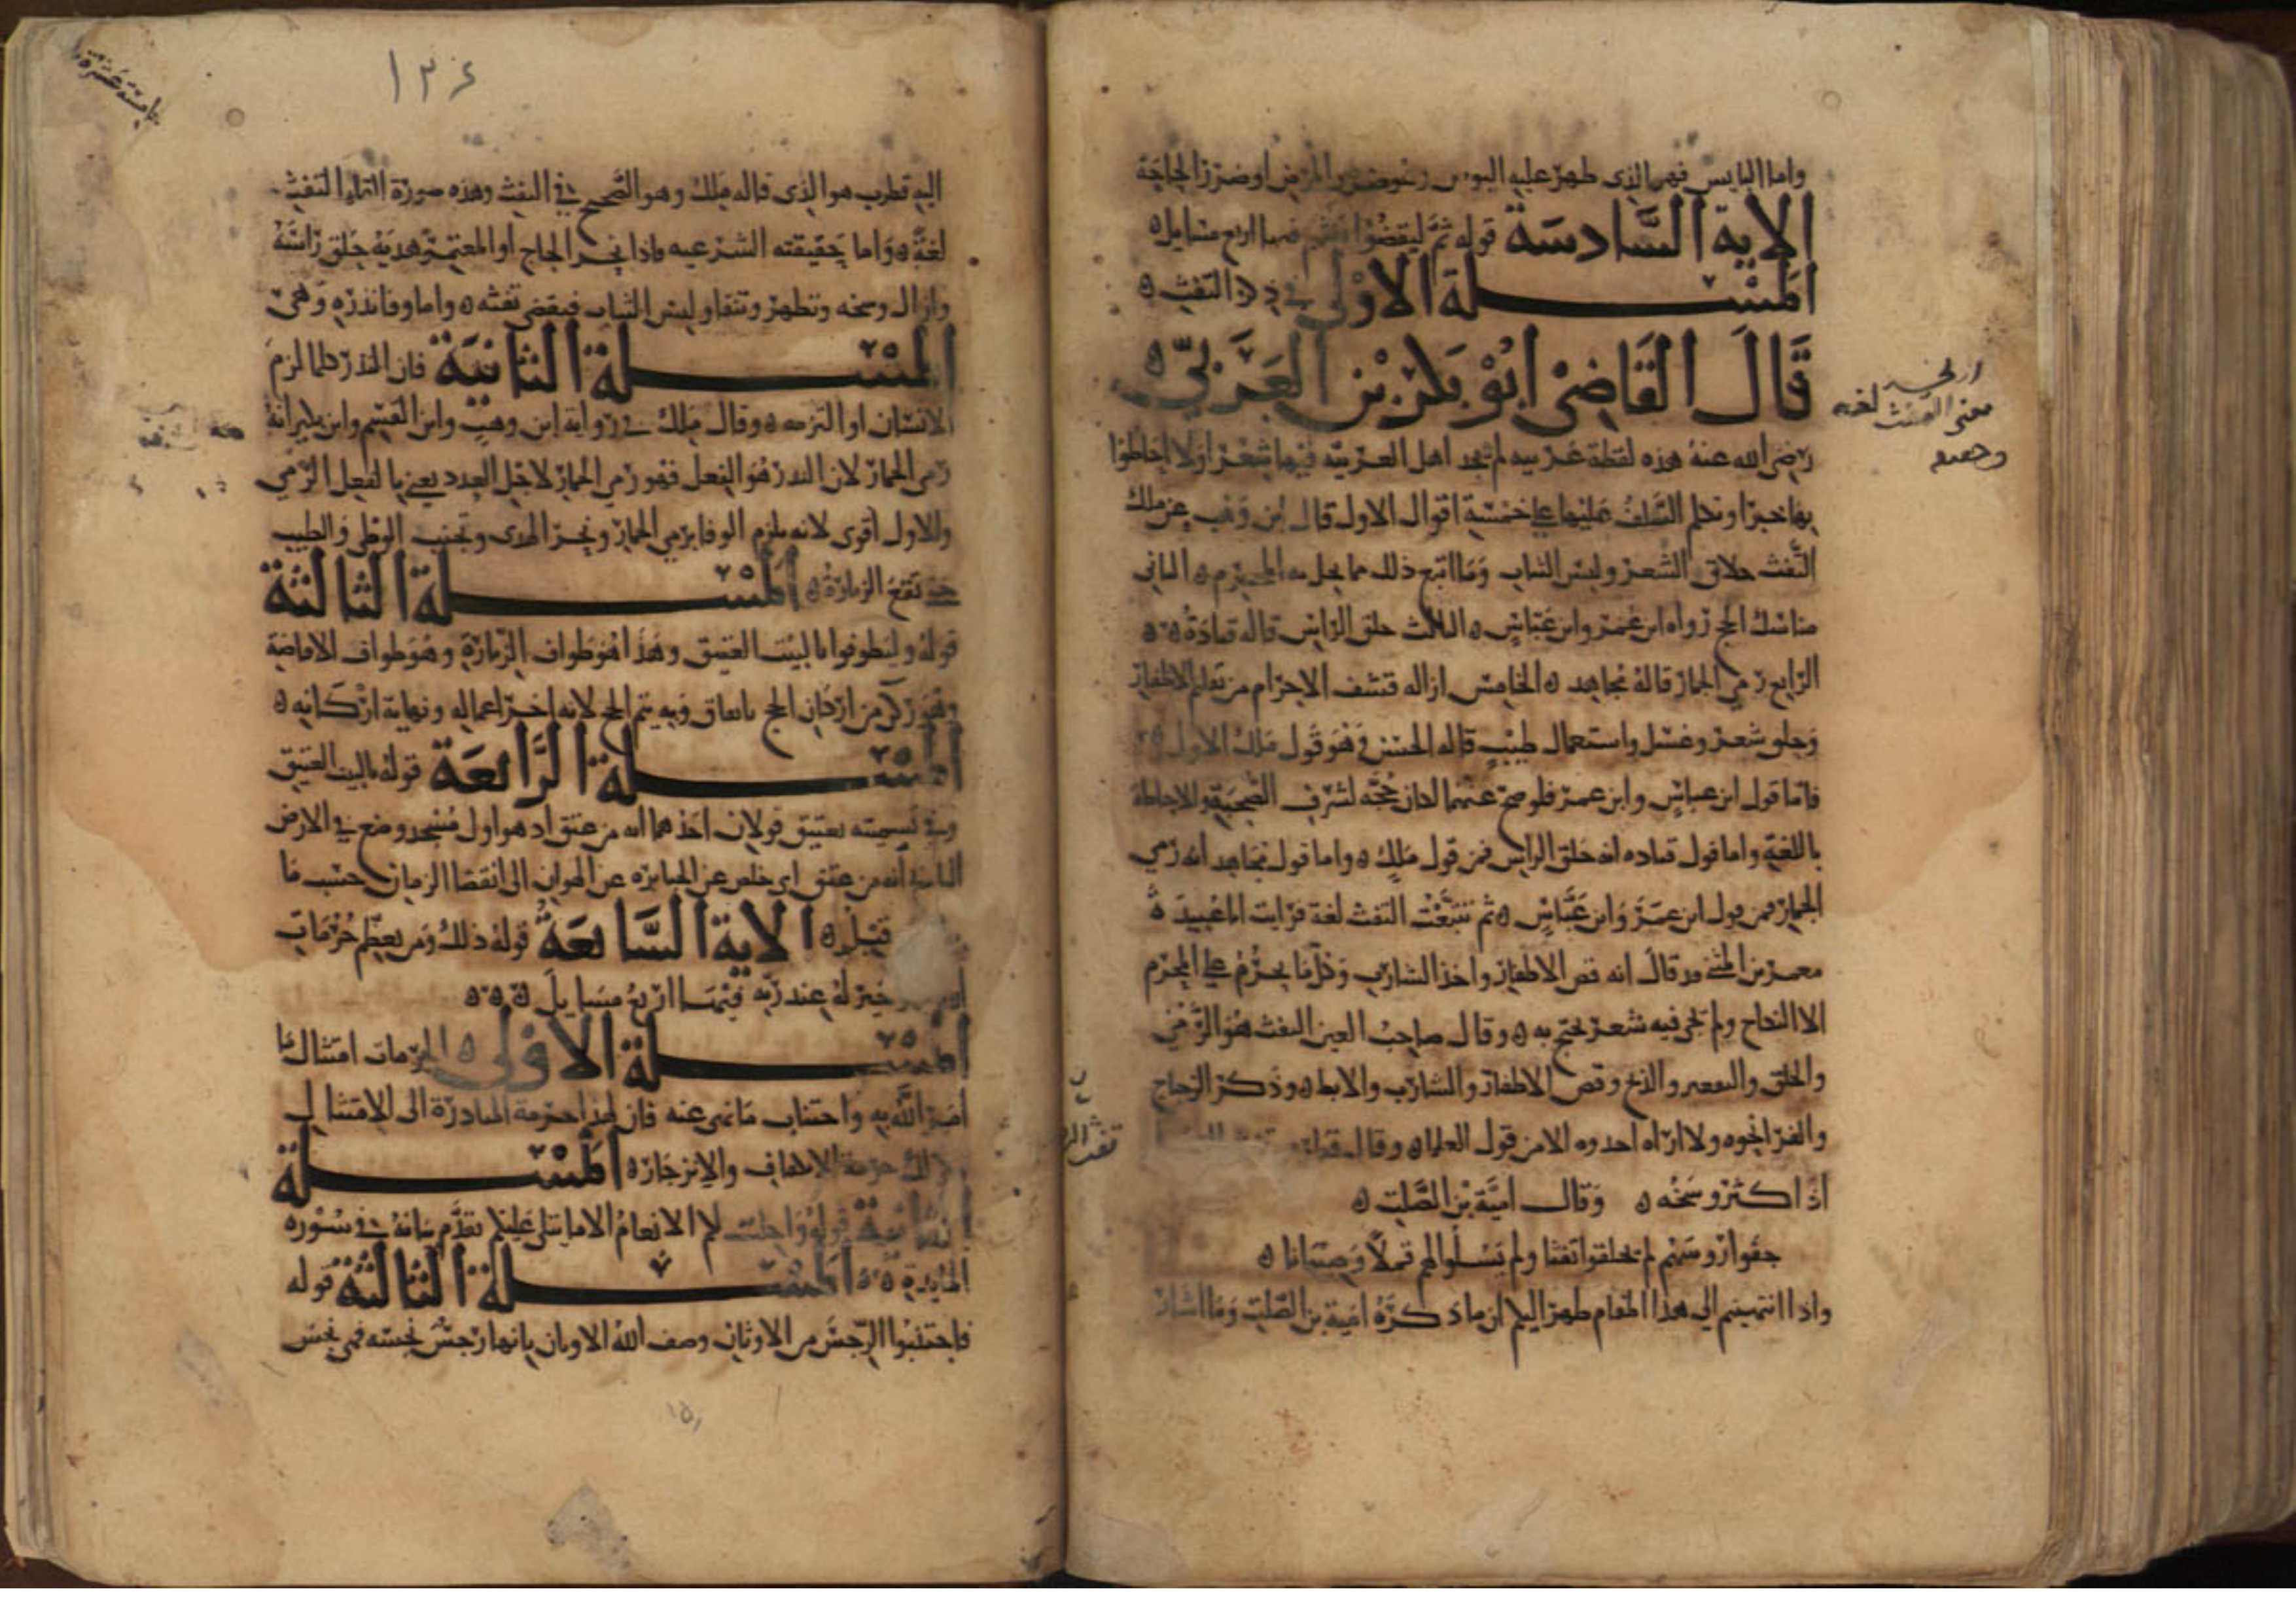 واما البايس فهو الذى ظهر عليه البوس وهو ضرر المرض او ضرر الحاجة
الاية السادسة قوله ثم ليقضوا تفثهم فيها اربع مسايل
المسلة الاولى في ذكر التفث
قال القاضى ابو بكر بن العربى
رضى الله عنه هذه لفظة غريبه لم يجد اهل العربية فيها شعرا ولا احاطوا
بها خبرا وتكلم السلف عليها على خمسة اقوال الاول قال ابن وهب عن ملك
التفث حلاق الشعر ولبس الثياب وما اتبع ذلك مما يحل به المحرم الثانى
مناسك الحج رواه ابن عمر وابن عباس الثالث حلق الراس قاله قتادة
الرابع رمى الجمار قاله مجاهد الخامس ازاله قشف الاحرام من تقليم الاظفار
وحلق شعر وغسل واستعمال طيب قاله الحسن وهو قول ملك الاول
فاما قول ابن عباس وابن عمر فلو صح عنهما لكان حجة لشرف الصحبة والاحاطة
باللغة واما قول قتاده انه حلق الراس فمن قول ملك واما قول مجاهد انه رمى
الجمار فمن قول ابن عمر وابن عباس ثم تتبعت التفث لغة فرايت ابا عبيدة
معمر بن المثنى قد قال انه قص الاظفار واخذ الشارب وكل ما يحرم على المحرم
الا النكاح ولم يجى فيه شعر يحتج به وقال صاحب العين التفث هو الرمى
والحلق والتقصير والذبح وقص الاظفار والشارب والابط وذكر الزجاج
والفرا نحوه ولا اراه اخذوه الا من قول العلما وقال قطرب تفث الرجل
اذا كثر وسخه وقال امية بن الصلت
حفوا روسهم لم يحلقوا تفثا ولم يسلوا لهم قملا وصيبانا
واذا انتهيتم الى هذا المقام ظهر اليكم ان ما ذكره امية بن الصلت وما اشار
معنى التفث لغة
تفث الر
١٣٤
اليه قطرب هو الذى قاله ملك وهو الصحيح في التفث وهذه صورة القاء التفث
لغة واما حقيقته الشرعيه فاذا نحر الحاج او المعتمر هديه حلق راسه
وازال وسخه وتطهر وتنقا ولبس الثياب فيقضى تفثه واما وفا نذره وهى
المسلة الثانية فان النذر كلما لزم
الانسان او التزمه وقال ملك فى رواية ابن وهب وابن القسم وابن بكير انه
رمى الجمار لان النذر هو الفعل فهو رمى الجمار لاجل العدد يعنى بالفعل الرمى
والاول اقوى لانه يلزم الوفا برمى الجمار ونحر الهدى وتجنب الوطى والطيب
حتى تقع الزيارة المسلة الثالثة
قوله وليطوفوا بالبيت العتيق وهذا هو طواف الزيارة وهو طواف الافاضة
وهو ركن من اركان الحج باتفاق وبه يتم الحج لانه اخر اعماله ونهاية اركانه
المسلة الرابعة قوله بالبيت العتيق
وفى تسميته بعتيق قولان احدهما انه من عتق اذ هو اول مسجد وضع في الارض
الثانى انه من عتق اى خلص عن الجبابرة عن الهوان الى انقضا الزمان حسب ما
قيل الاية السابعة قوله ذلك ومن يعظم حرمات
خير له عند ربه فيها اربع مسايل
المسلة الاولى الحرمات امتثال ما
امر الله به واجتناب ما نهى عنه فان لهذا حرمة المبادرة الى الامتثال
ولذلك حرمة الانكفاف والانزجار المسلة
الثانية قوله واحلت لكم الانعام الا ما يتلى عليكم تقدم بيانه فى سورة
المايدة المسلة الثالثة قوله
فاجتنبوا الرجس من الاوثان وصف الله الاوثان بانها رجس نجسه فهى نجس